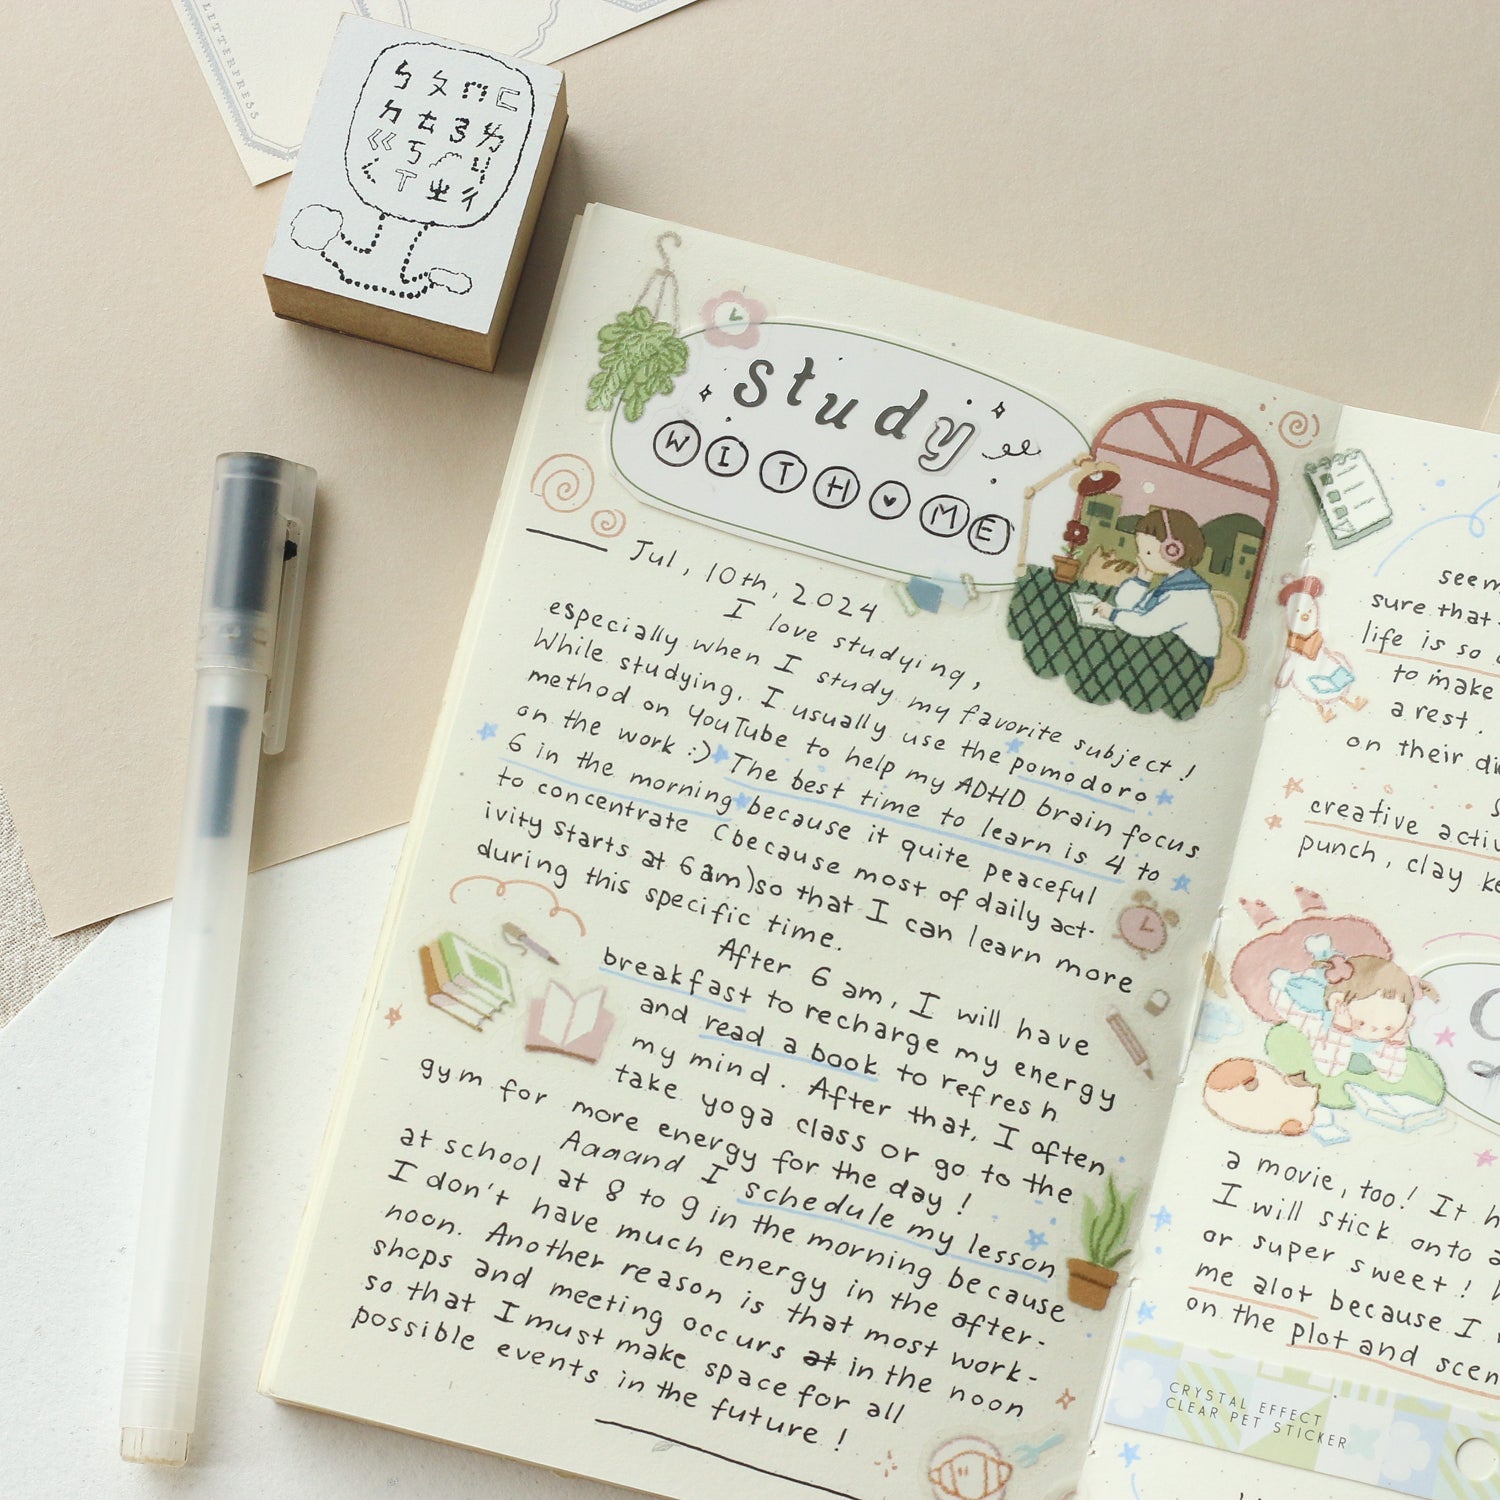 LETTERPRESS
ㄅㄆㄇㄈ
ㄉㄊㄋㄌ
ㄍㄎㄏㄐ
ㄑㄒㄓㄔ
study
WITH ME
Jul, 10th, 2024
I love studying,
especially when I study my favorite subject!
While studying, I usually use the pomodoro
method on YouTube to help my ADHD brain focus
on the work :) The best time to learn is 4 to
6 in the morning because it quite peaceful
to concentrate (because most of daily act-
ivity starts at 6am) so that I can learn more
during this specific time.
After 6 am, I will have
breakfast to recharge my energy
and read a book to refresh
my mind. After that, I often
take yoga class or go to the
gym for more energy for the day!
Aaaand I schedule my lesson
at school at 8 to 9 in the morning because
I don't have much energy in the after-
noon. Another reason is that most work-
shops and meeting occurs at in the noon
so that I must make space for all
possible events in the future!
seem
sure that
life is so
to make
a rest.
on their
creative activ
punch, clay ke
a movie, too! It h
I will stick onto a
or super sweet!
me alot because I
on the plot and scen
CRYSTAL EFFECT
CLEAR PET STICKER